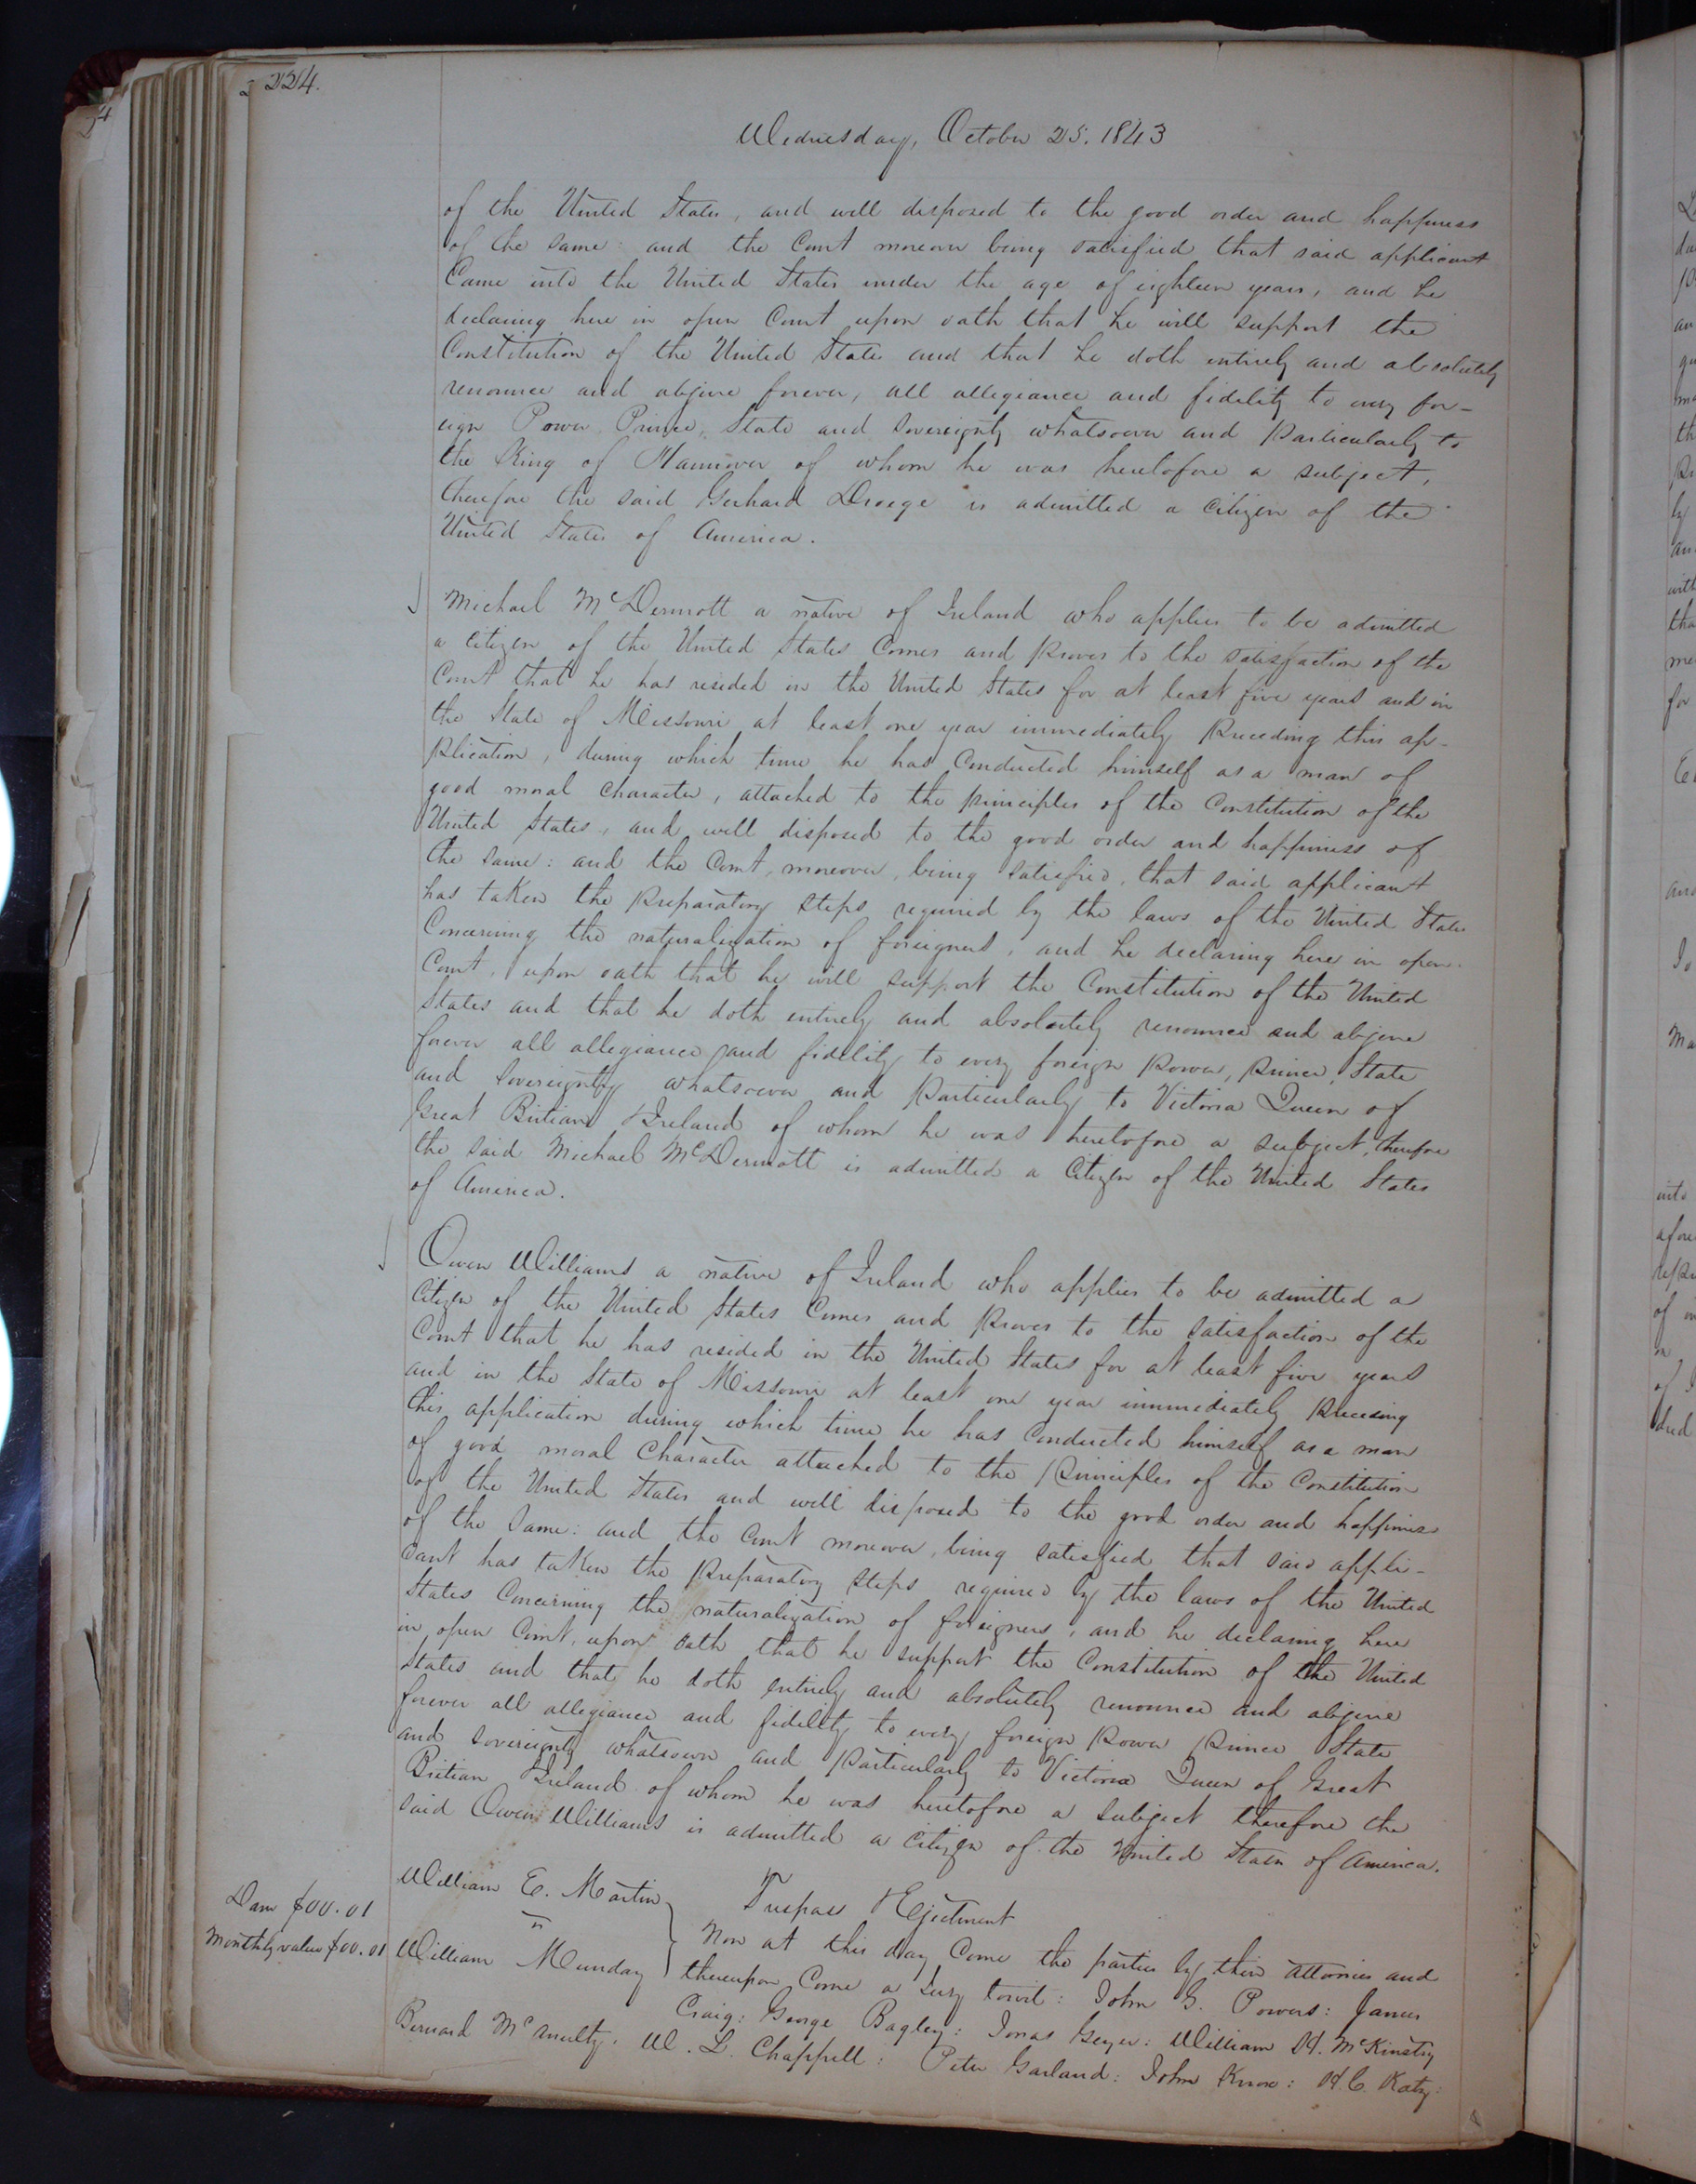 224.
Wednesday, October 25. 1843
of the United States, and well disposed to the good order and happiness
of the same: and the Court moreover being satisfied that said applicant
Came into the United States under the age of eighteen years, and he
declaring here in open Court upon oath that he will support the
Constitution of the United States and that he doth entirely and absolutely
renounce and abjure forever, all allegiance and fidelity to every for-
eign Power Prince, State and Sovereignty whatsoever and Particularly to
the King of Hannover of whom he was heretofore a subject,
therefore the said Gerhard Droege is admitted a Citizen of the
United States of America.
Michael McDermott a native of Ireland who applies to be admitted
a Citizen of the United States Comes and Proves to the satisfaction of the
Court that he has resided in the United States for at least five years and in
the State of Missouri at least one year immediately Preceding this ap-
plication, during which time he has Conducted himself as a man of
good moral Character, attached to the principles of the Constitution of the
United States, and well disposed to the good order and happiness of
the same: and the Court, moreover, being satisfied, that said applicant
has taken the Preparatory steps required by the laws of the United States
Concerning the naturalization of foreigners, and he declaring here in open
Court, upon oath that he will support the Constitution of the United
States and that he doth entirely and absolutely renounce and abjure
forever all allegiance and fidelity to every foreign Power, Prince, State
and Sovereignty whatsoever and Particularly to Victoria Queen of
Great Britian & Ireland of whom he was heretofore a subject, therefore
the said Michael McDermott is admitted a Citizen of the United States
of America.
Owen Williams a native of Ireland who applies to be admitted a
Citizen of the United States Comes and Proves to the satisfaction of the
Court that he has resided in the United States for at least five years
and in the State of Missouri at least one year immediately Preceding
this application during which time he has Conducted himself as a man
of good moral Character attached to the Principles of the Constitution
of the United States and well disposed to the good order and happiness
of the same: and the Court moreover, being satisfied that said appli-
cant has taken the Preparatory steps required by the laws of the United
States Concerning the naturalization of foreigners, and he declaring here
in open Court, upon oath that he support the Constitution of the United
States and that he doth entirely and absolutely renounce and abjure
forever all allegiance and fidelity to every foreign Power Prince State
and Sovereignty whatsoever and Particularly to Victoria Queen of Great
Britian & Ireland of whom he was heretofore a subject therefore the
said Owen Williams is admitted a Citizen of the United States of America.
William E. Martin Trespass & Ejectment
vs
Dam $00.01
Now at this day Come the parties by their attornies and
Monthly value $00.01
William Munday thereupon Come a Jury towit: John G. Powers: James
Craig: George Bagley: Jonas Geyer: William H. McKinstry
Bernard McAnulty. W. L. Chappell: Peter Garland: John Knox: H. C. Katz: